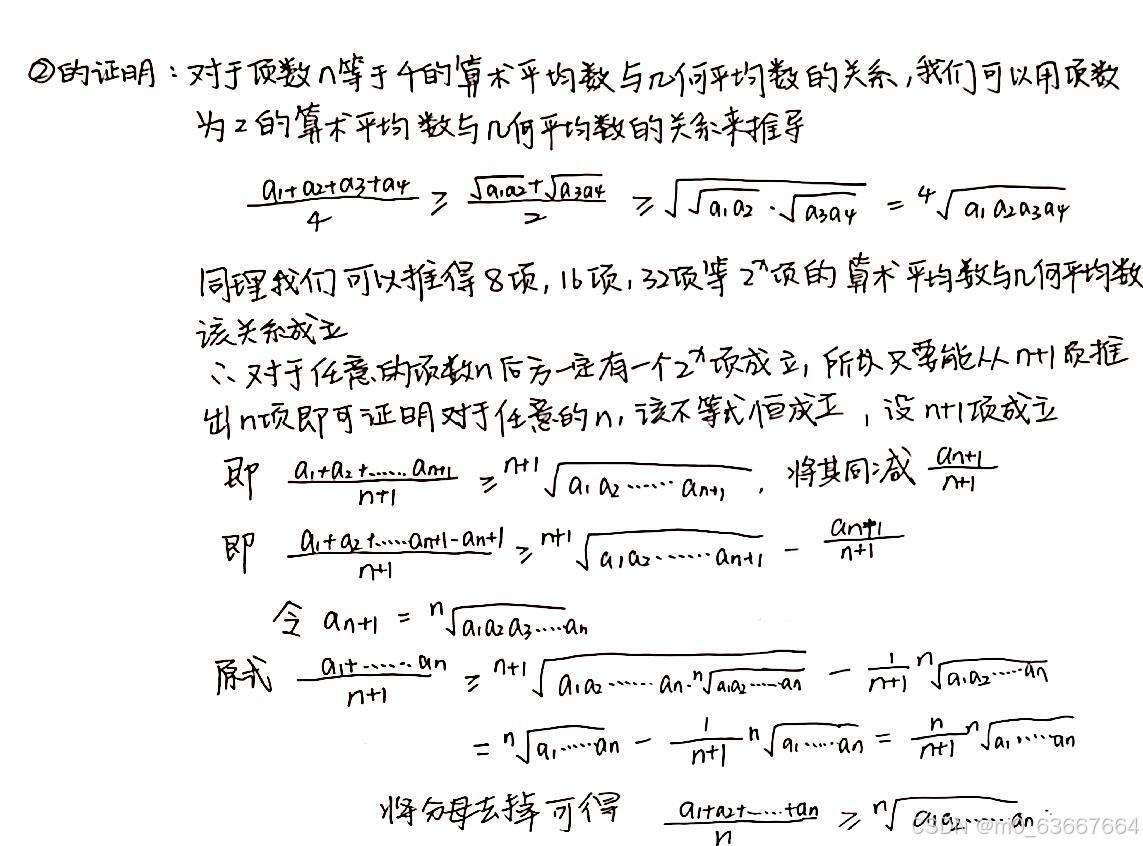 ②的证明：对于项数n等于4的算术平均数与几何平均数的关系，我们可以用项数
为2的算术平均数与几何平均数的关系来推导
(a₁+a₂+a₃+a₄)/4 ≥ (√(a₁a₂)+√(a₃a₄))/2 ≥ √(√(a₁a₂)·√(a₃a₄)) = ⁴√(a₁a₂a₃a₄)
同理我们可以推得8项，16项，32项等2ˣ项的算术平均数与几何平均数
该关系成立
∴对于任意的项数n后方一定有一个2ˣ项成立，所以只要能从n+1项推
出n项即可证明对于任意的n，该不等式恒成立，设n+1项成立
即 (a₁+a₂+……aₙ₊₁)/(n+1) ≥ ⁿ⁺¹√(a₁a₂……aₙ₊₁)，将其同减 aₙ₊₁/(n+1)
即 (a₁+a₂+……aₙ₊₁-aₙ₊₁)/(n+1) ≥ ⁿ⁺¹√(a₁a₂……aₙ₊₁) - aₙ₊₁/(n+1)
令 aₙ₊₁ = ⁿ√(a₁a₂a₃……aₙ)
原式 (a₁+……aₙ)/(n+1) ≥ ⁿ⁺¹√(a₁a₂……aₙ·ⁿ√(a₁a₂……aₙ)) - 1/(n+1) ⁿ√(a₁a₂……aₙ)
= ⁿ√(a₁……aₙ) - 1/(n+1) ⁿ√(a₁……aₙ) = n/(n+1) ⁿ√(a₁……aₙ)
将分母去掉可得 (a₁+a₂+……+aₙ)/n ≥ ⁿ√(a₁a₂……aₙ)
CSDN @m0_63667664